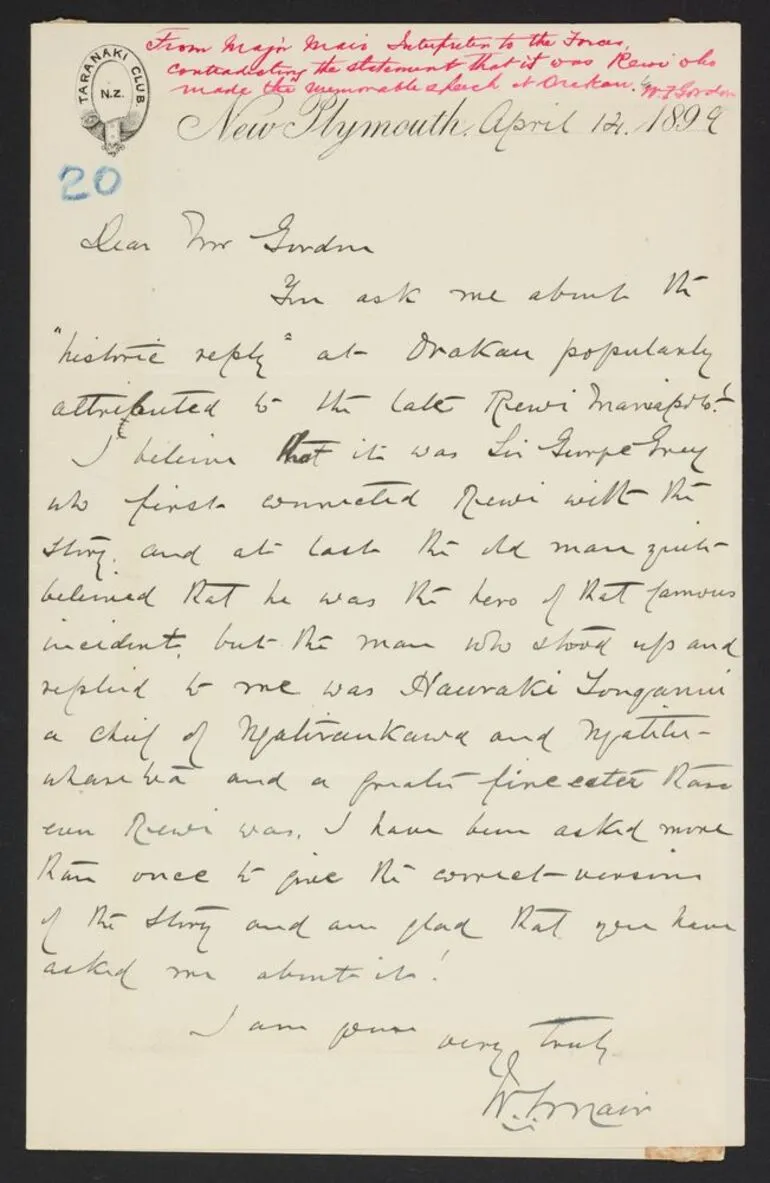 From Major Mair Interpreter to the Forces,
contradicting the statement that it was Rewi who
made the "memorable speech at Orakau." W F Gordon
TARANAKI CLUB.
N.Z.
New Plymouth, April 12, 1899
20
Dear Mr Gordon
You ask me about the
"historic reply" at Orakau popularly
attributed to the late Rewi Maniapoto!
I believe that it was Sir George Grey
who first connected Rewi with the
story, and at last the old man quite
believed that he was the hero of that famous
incident, but the man who stood up and
replied to me was Hauraki Tonganui
a chief of Ngatiraukawa and Ngatitu-
wharetoa and a greater fire eater than
even Rewi was. I have been asked more
than once to give the correct version
of the story and am glad that you have
asked me about it!
I am yours very truly
W. G. Mair